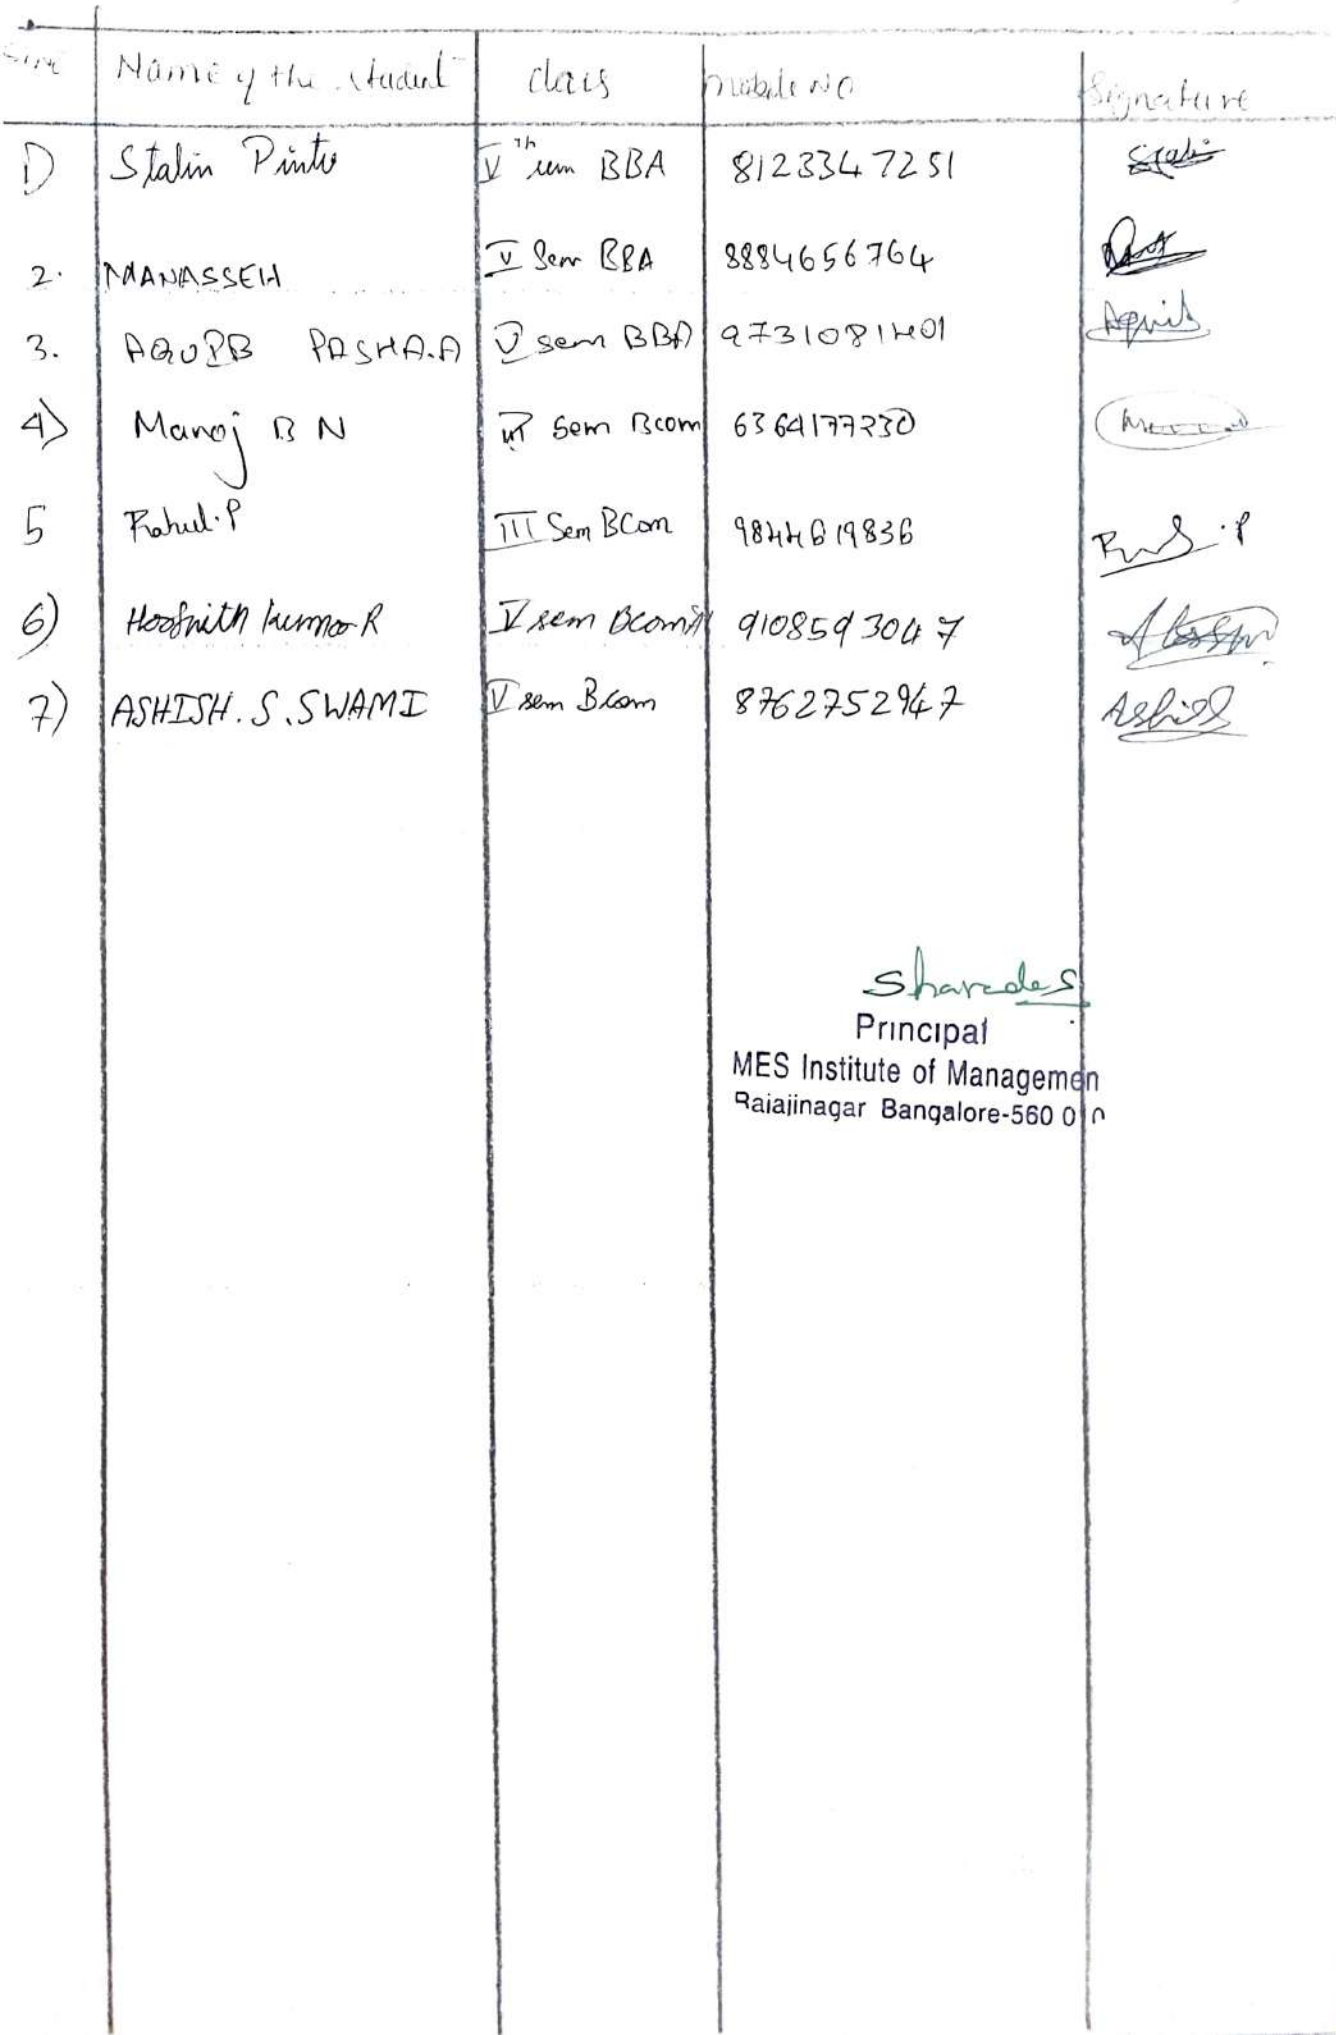 Sl No Name of the Student class mobile No Signature
1) Stalin Pinto Vth sem BBA 8123347251 Stalin
2. MANASSEH V Sem BBA 8884656764
3. AQUIB PASHA.A V sem BBA 9731081401 Aquib
4) Manoj B N III Sem Bcom 6364177230
5 Rahul.P III Sem BCom 9844619836
6) Kumar R V sem Bcom 9108593047
7) ASHISH.S.SWAMI V sem Bcom 8762752947 Ashish
Sharada S
Principal
MES Institute of Managemen
Rajajinagar Bangalore-560 010